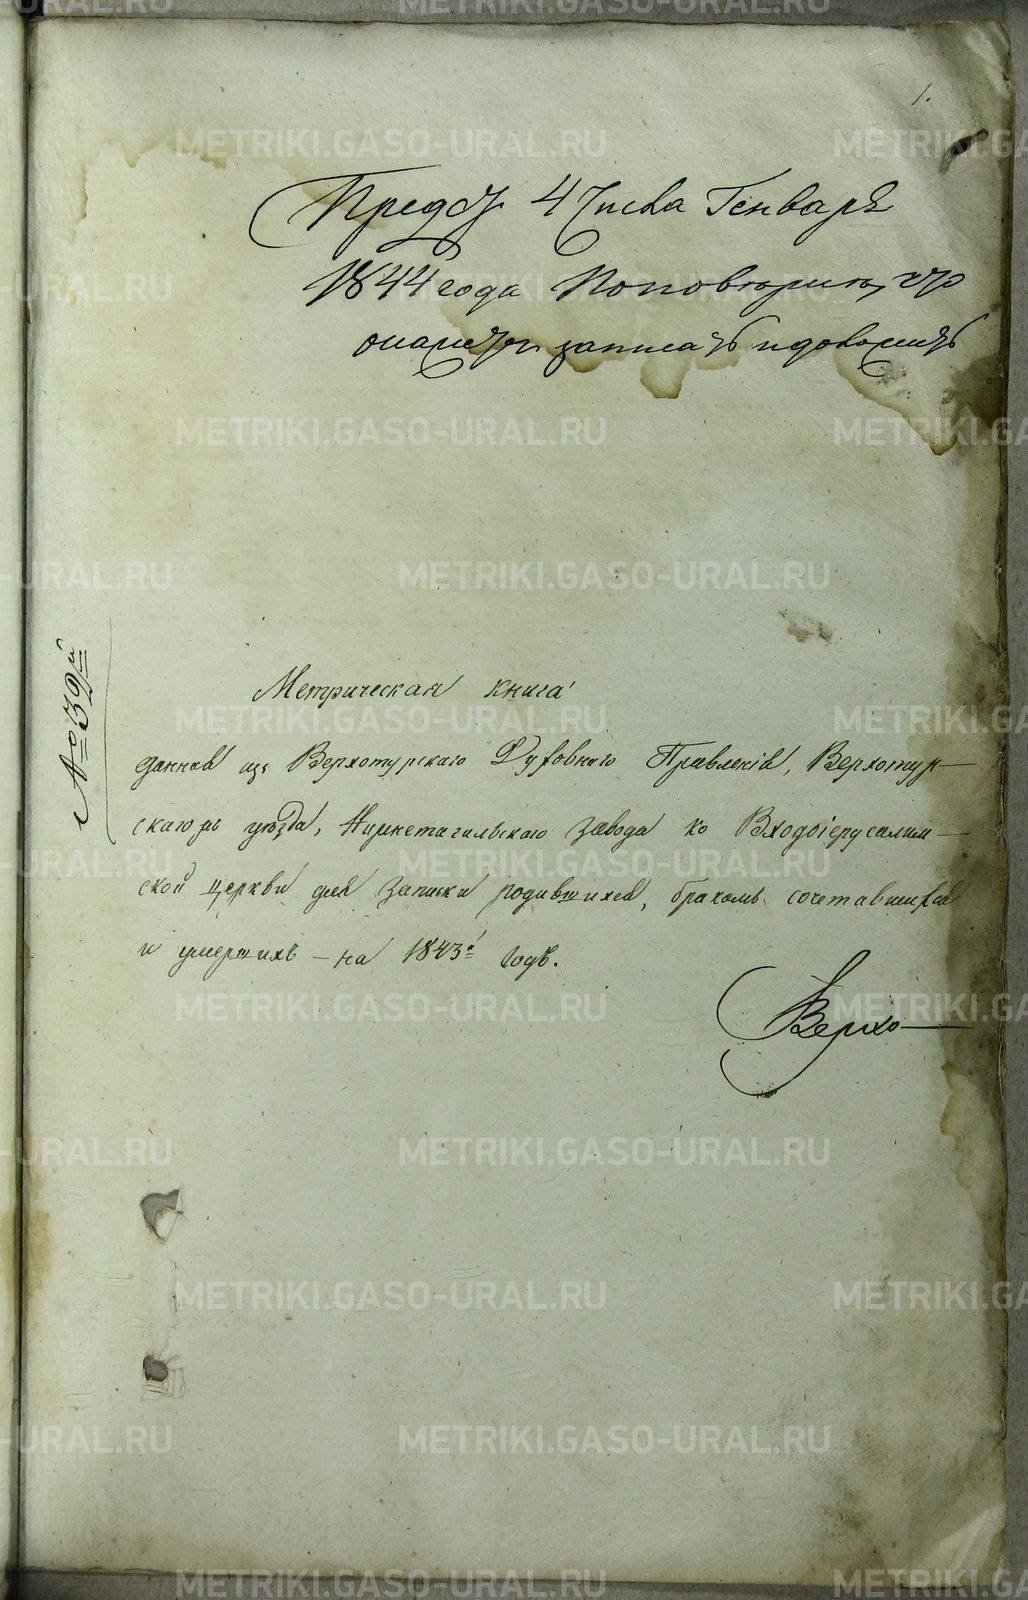 1.
Предст 4 Числа Генваря
1844 года
записать и доложить
№ 39й
Метрическая книга
данная изъ Верхотурскаго Духовнаго Правленія, Верхотур-
скаго уѣзда, Нижнетагильскаго завода ко Входоіерусалим-
ской церкви для записки родившихся, бракомъ сочетавшихся
и умершихъ - на 1843й годъ.
Верхо-
METRIKI.GASO-URAL.RU